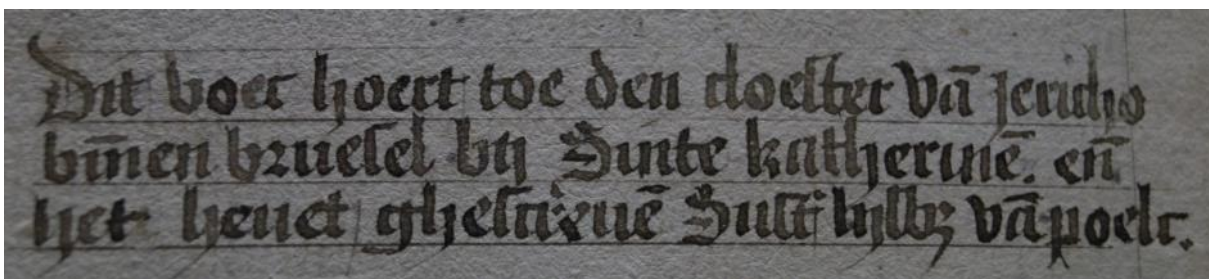 Dit boec hoert toe den cloester vā jericho
bīnen bruesel bij Sinte katherinē. en̄
het heuet ghescreuē Sust' lijsbꝫ vā poelc.